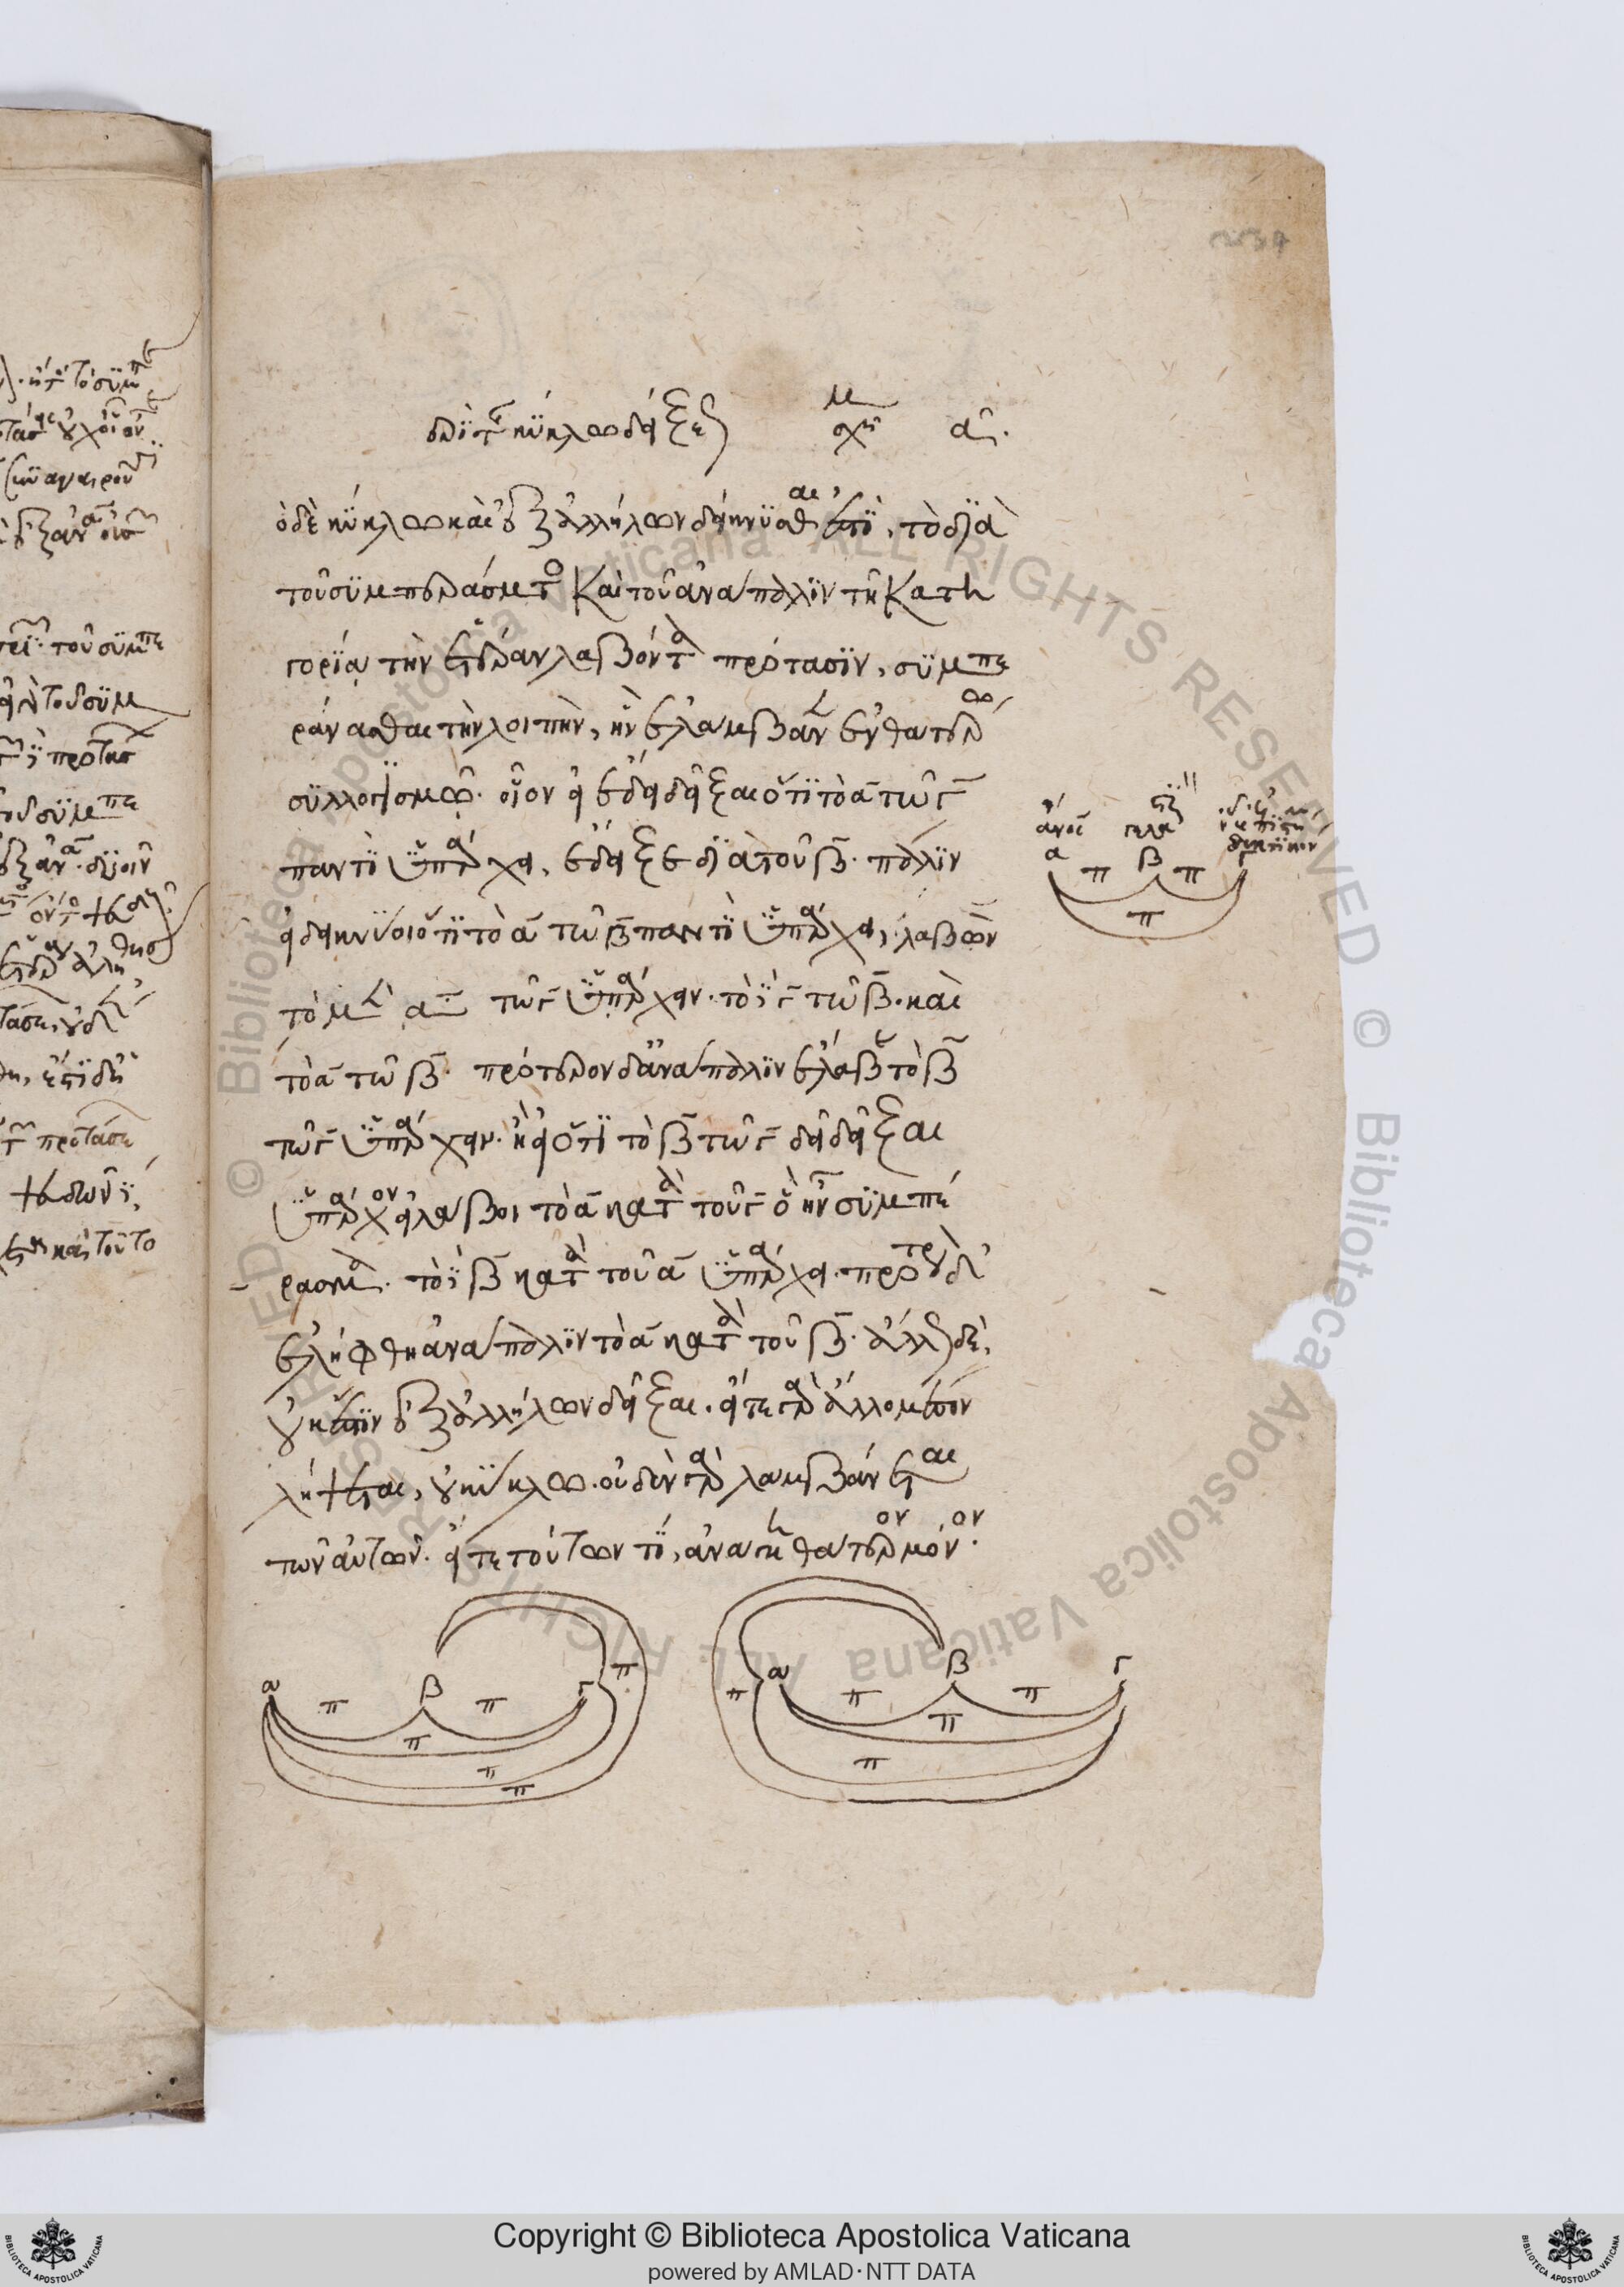 περὶ τῆς κύκλῳ δείξεως σχῆμα αον.
ὁ δὲ κύκλῳ καὶ ἐξ ἀλλήλων δείκνυσθαι ἐστὶ, τὸ διὰ
τοῦ συμπεράσματος καὶ τοῦ ἀνάπαλιν τῇ κατη
γορίᾳ τὴν ἑτέραν λαβόντα πρότασιν, συμπε
ράνασθαι τὴν λοιπὴν, ἣν ἐλάμβανεν ἐν θατέρῳ
συλλογισμῷ. οἷον εἰ ἔδει δεῖξαι ὅτι τὸ α τῷ γ
παντὶ ὑπάρχει, ἔδειξε διὰ τοῦ β. πάλιν
εἰ δεικνύοι ὅτι τὸ α τῷ β παντὶ ὑπάρχει, λαβὼν
τὸ μὲν α τῷ γ ὑπάρχειν. τὸ δὲ γ τῷ β. καὶ
τὸ α τῷ β. πρότερον δ' ἀνάπαλιν ἔλαβε τὸ β
τῷ γ ὑπάρχειν. ἢ εἰ ὅτι τὸ β τῷ γ δεῖ δεῖξαι
ὑπάρχον εἰ λάβοι τὸ α κατὰ τοῦ γ ὃ ἦν συμπέ
ρασμα. τὸ δὲ β κατὰ τοῦ α ὑπάρχει. πρότερον δὲ
ἐλήφθη ἀνάπαλιν τὸ α κατὰ τοῦ β. ἄλλως δὲ,
οὐκ ἔστιν ἐξ ἀλλήλων δεῖξαι. εἴτε γὰρ ἄλλο μέσον
λήψεται, οὐ κύκλῳ. οὐδὲν γὰρ λαμβάνεται
τῶν αὐτῶν. εἴτε τούτων τί, ἀνάγκη θάτερον μόνον.
α β γ
π π
π
α β γ
π π π
π
π
π
α β γ
π π π
π
π